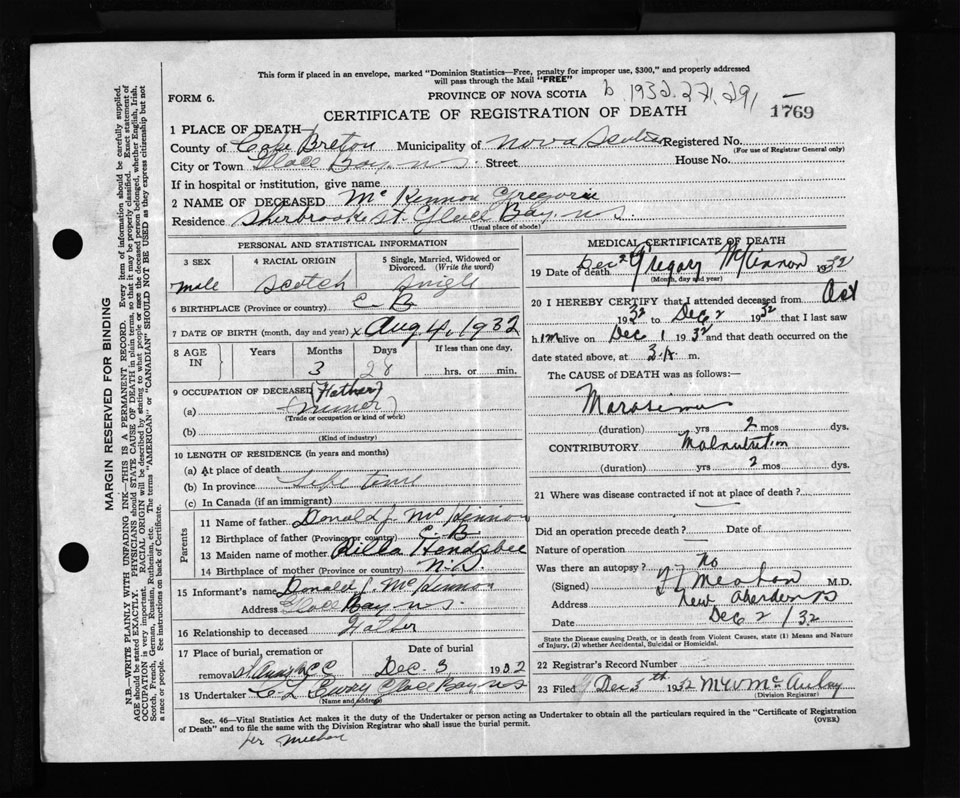 This form if placed in an envelope, marked "Dominion Statistics—Free, penalty for improper use, $300," and properly addressed
will pass through the Mail "FREE"
FORM 6.
PROVINCE OF NOVA SCOTIA
b 1932.271.291
CERTIFICATE OF REGISTRATION OF DEATH
1769
1 PLACE OF DEATH—
County of Cape Breton Municipality of Nova Scotia Registered No.
(For use of Registrar General only)
City or Town Glace Bay, N.S. Street House No.
If in hospital or institution, give name
2 NAME OF DECEASED McKinnon Gregory
Residence Sherbrooke St. Glace Bay, N.S.
(Usual place of abode)
PERSONAL AND STATISTICAL INFORMATION
3 SEX
male
4 RACIAL ORIGIN
Scotch
5 Single, Married, Widowed or
Divorced. (Write the word)
Single
6 BIRTHPLACE (Province or country) C. B.
7 DATE OF BIRTH (month, day and year) x Aug 4, 1932
8 AGE
IN
Years
Months
3
Days
28
If less than one day,
hrs. or min.
9 OCCUPATION OF DECEASED (Father)
(a) (miner)
(Trade or occupation or kind of work)
(b)
(Kind of industry)
10 LENGTH OF RESIDENCE (in years and months)
(a) At place of death
(b) In province life time
(c) In Canada (if an immigrant)
Parents
11 Name of father Donald J. McKinnon
12 Birthplace of father (Province or country) C. B.
13 Maiden name of mother Rilla Hendsbee
14 Birthplace of mother (Province or country) N.S.
15 Informant's name Donald J. McKinnon
Address Glace Bay, N.S.
16 Relationship to deceased Father
17 Place of burial, cremation or
removal St. Anne's C C
Date of burial
Dec. 3 1932
18 Undertaker Glace Bay N.S
(Name and address)
MEDICAL CERTIFICATE OF DEATH
Gregory McKinnon
19 Date of death Dec 2 1932
(Month, day and year)
20 I HEREBY CERTIFY that I attended deceased from Oct
1932 to Dec 2 1932 that I last saw
him alive on Dec 1 1932 and that death occurred on the
date stated above, at 3 A. m.
The CAUSE OF DEATH was as follows:—
Marasmus
(duration) yrs 2 mos dys.
CONTRIBUTORY Malnutrition
(duration) yrs 2 mos dys.
21 Where was disease contracted if not at place of death?
Did an operation precede death? Date of
Nature of operation
Was there an autopsy? No
(Signed) Meehan M.D.
Address New Aberdeen NS
Date Dec 2 / 32
State the Disease causing Death, or in death from Violent Causes, state (1) Means and Nature
of Injury, (2) whether Accidental, Suicidal or Homicidal.
22 Registrar's Record Number
23 Filed Dec 5th 1932 McAulay
(Division Registrar)
Sec. 46—Vital Statistics Act makes it the duty of the Undertaker or person acting as Undertaker to obtain all the particulars required in the "Certificate of Registration
of Death" and to file the same with the Division Registrar who shall issue the burial permit.
(OVER)
per Meehan
MARGIN RESERVED FOR BINDING
N.B.—WRITE PLAINLY WITH UNFADING INK—THIS IS A PERMANENT RECORD. Every item of information should be carefully supplied.
AGE should be stated EXACTLY. PHYSICIANS should STATE CAUSE OF DEATH in plain terms, so that it may be properly classified. Exact statement of
OCCUPATION is very important. RACIAL ORIGIN will be described by stating to what people or race the deceased person belonged, whether English, Irish,
Scotch, French, German, Russian, Ruthenian, etc. The terms "AMERICAN" or "CANADIAN" SHOULD NOT BE USED as they express citizenship but not
a race or people. See instructions on back of Certificate.